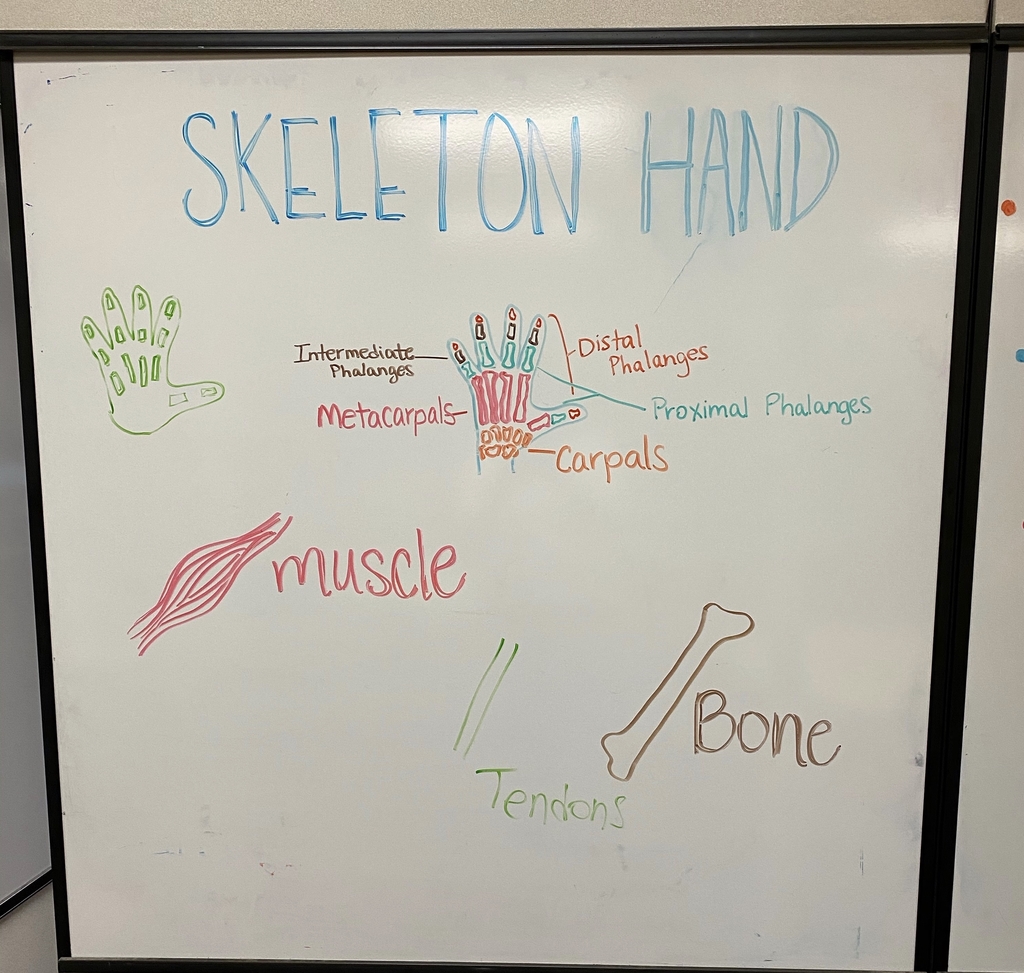 SKELETON HAND
Intermediate
Phalanges
Distal
Phalanges
Metacarpals
Proximal Phalanges
Carpals
muscle
Bone
Tendons